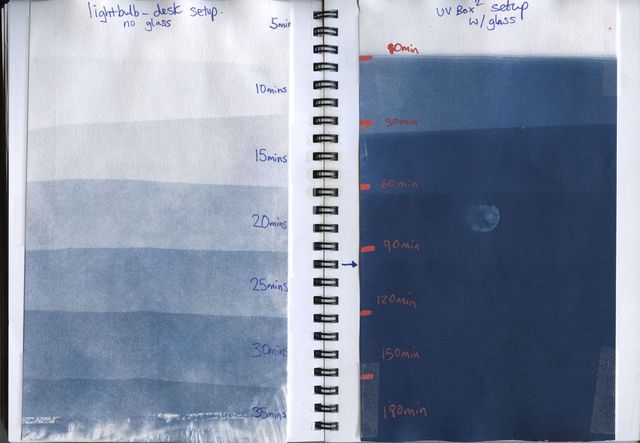 lightbulb - desk setup.
no glass
5min
10mins
15mins
20mins
25mins
30mins
35mins
UV Box² setup
w/ glass
30min
60min
90min
120min
150min
180min